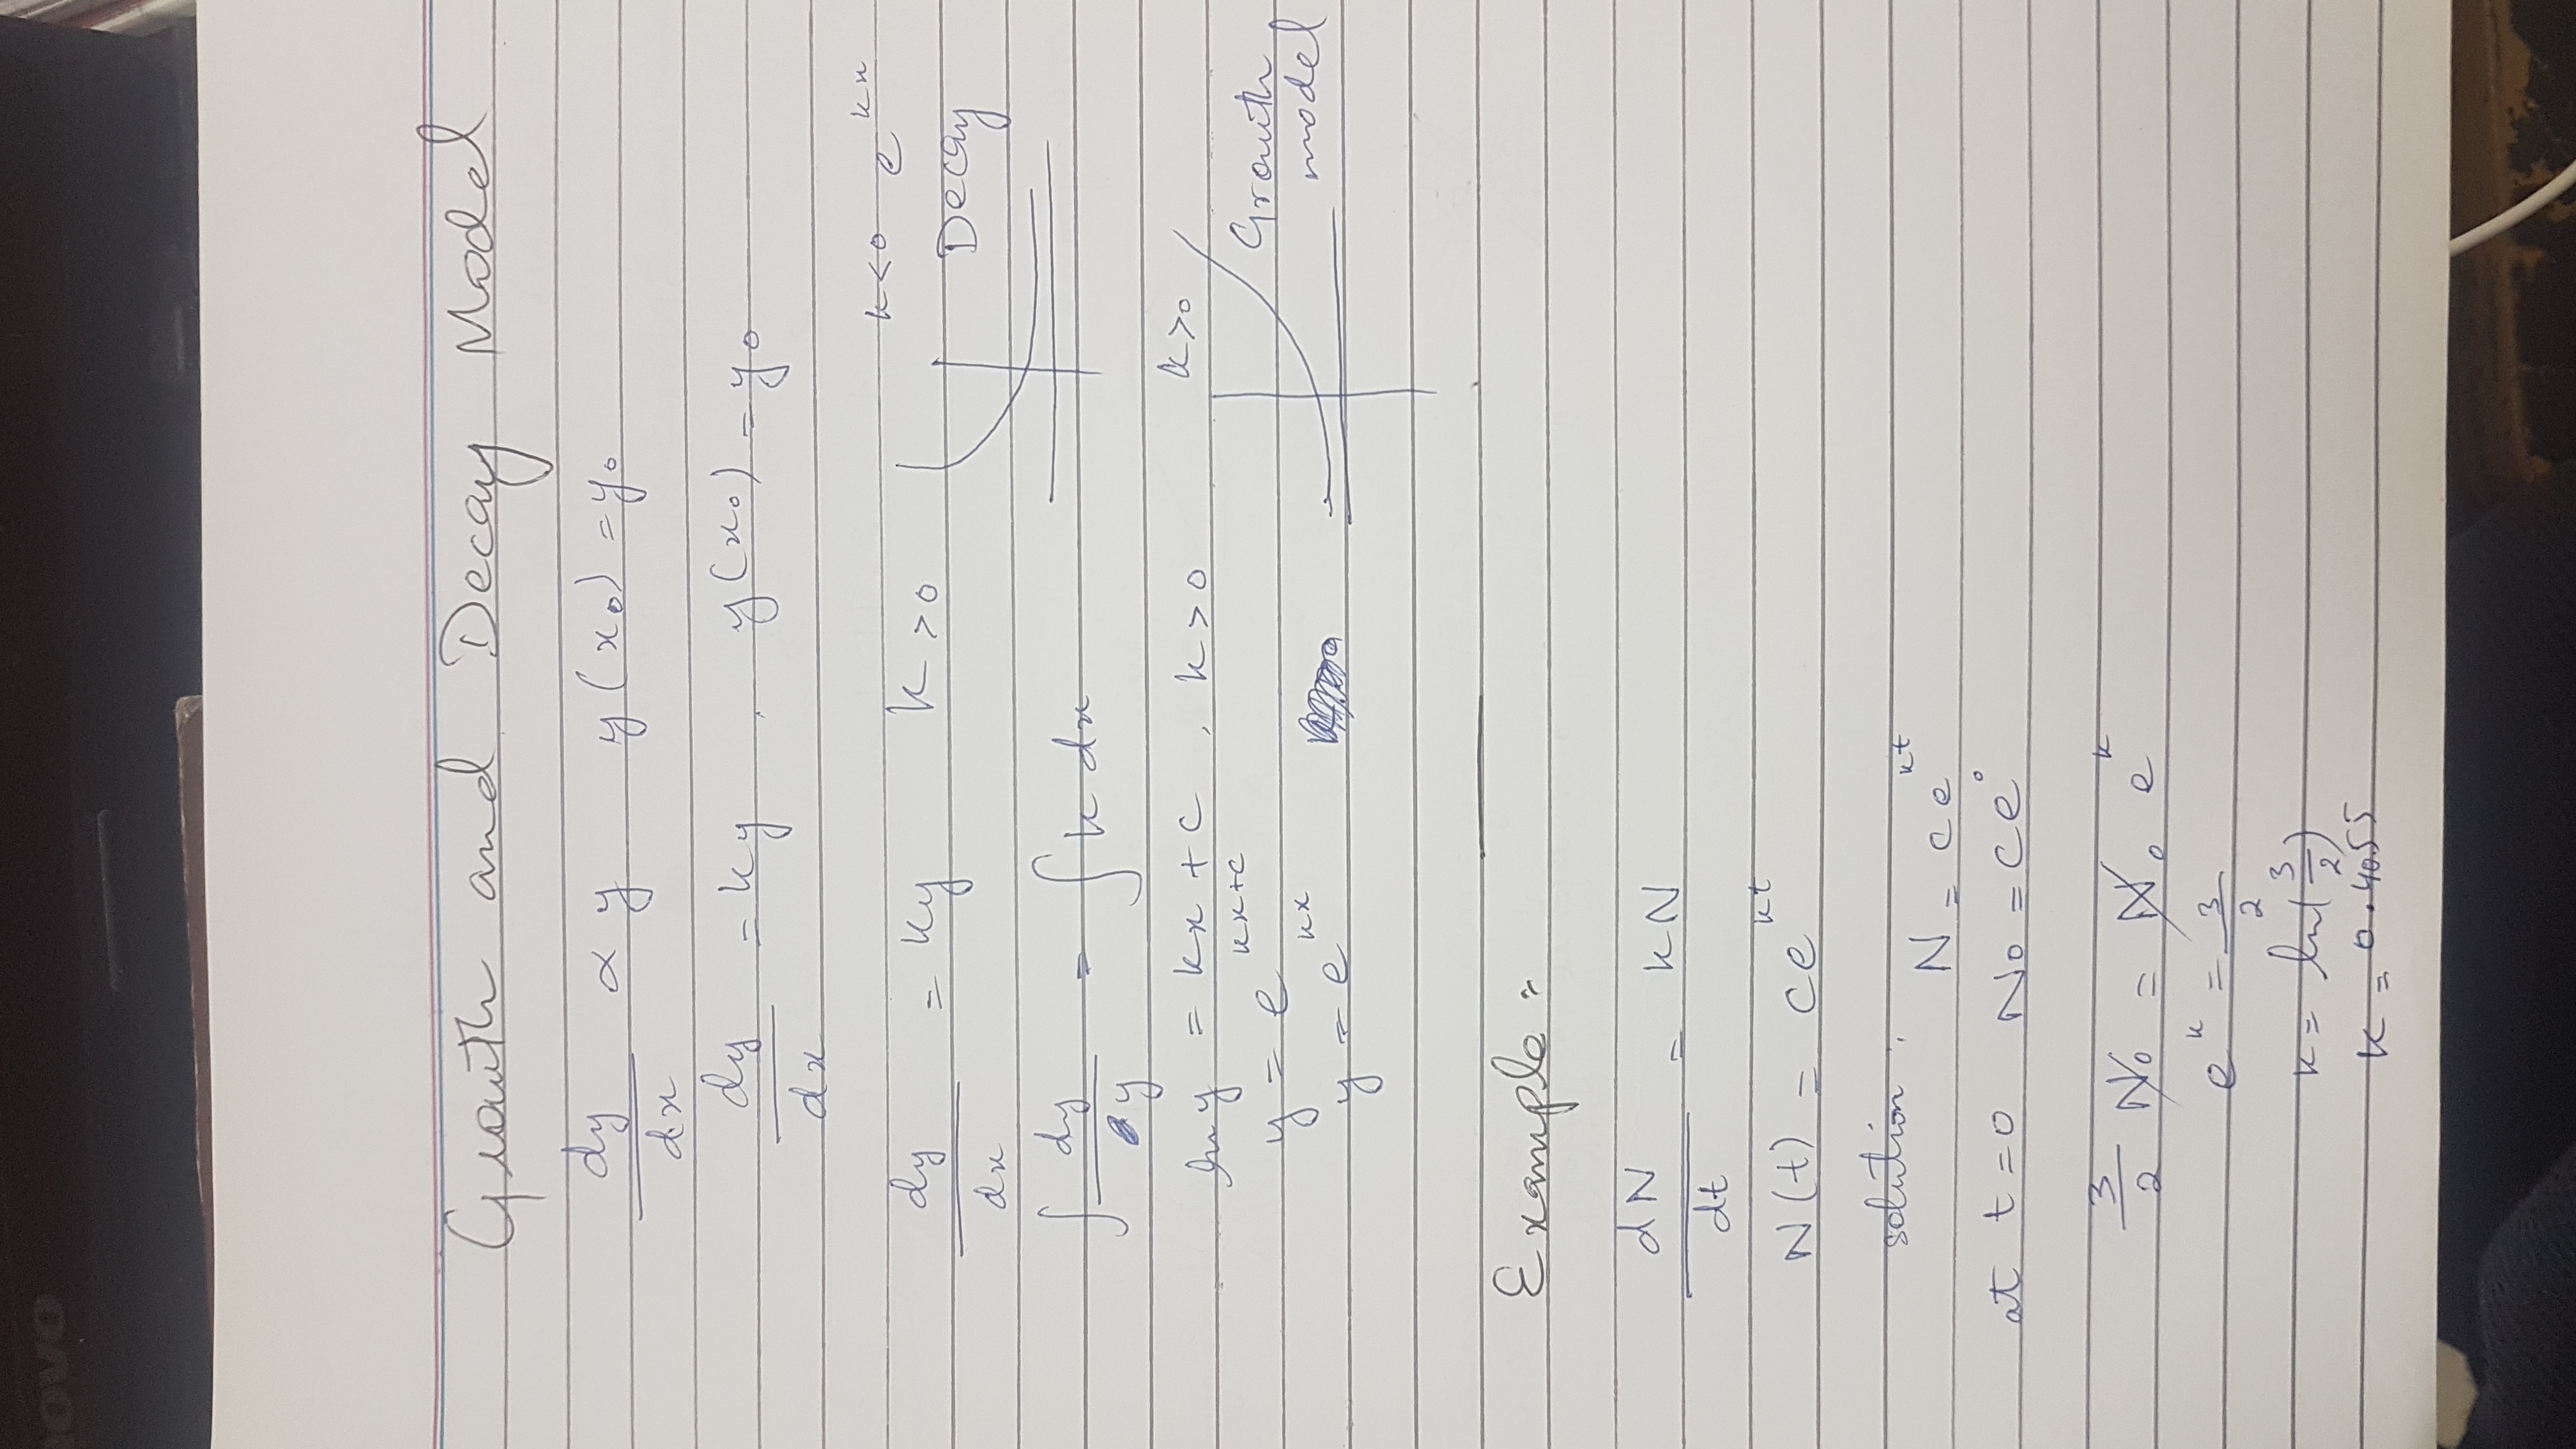 ovo
Growth and Decay Model
dy/dx ∝ y y(x₀) = y₀
dy/dx = ky , y(x₀) = y₀
dy/dx = ky k > 0
k < 0 e^kx
Decay
∫ dy/y = ∫ k dx
ln y = kx + c , k > 0
y = e^kx+c
y = e^kx
k > 0
Growth
model
Example :
dN/dt = kN
N(t) = ce^kt
solution :
N = ce^kt
at t = 0 N₀ = ce⁰
3/2 N₀ = N₀ e^k
e^k = 3/2
k = ln(3/2)
k = 0.4055